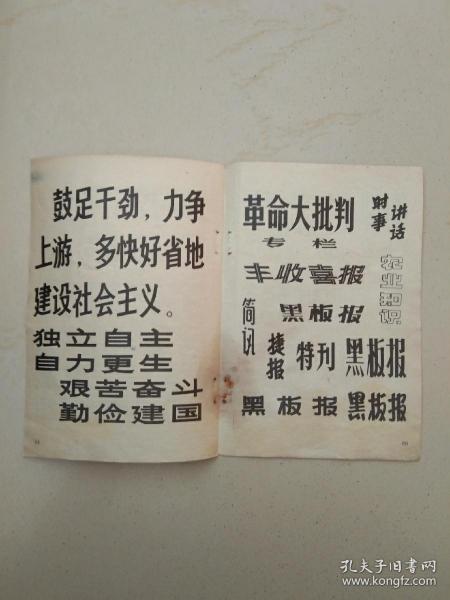 鼓足干劲，力争
上游，多快好省地
建设社会主义。
独立自主
自力更生
艰苦奋斗
勤俭建国
革命大批判
专栏
时事
讲话
丰收喜报
农业知识
简讯
黑板报
捷报
特刊
黑板报
黑板报
黑板报
孔夫子旧书网
www.kongfz.com